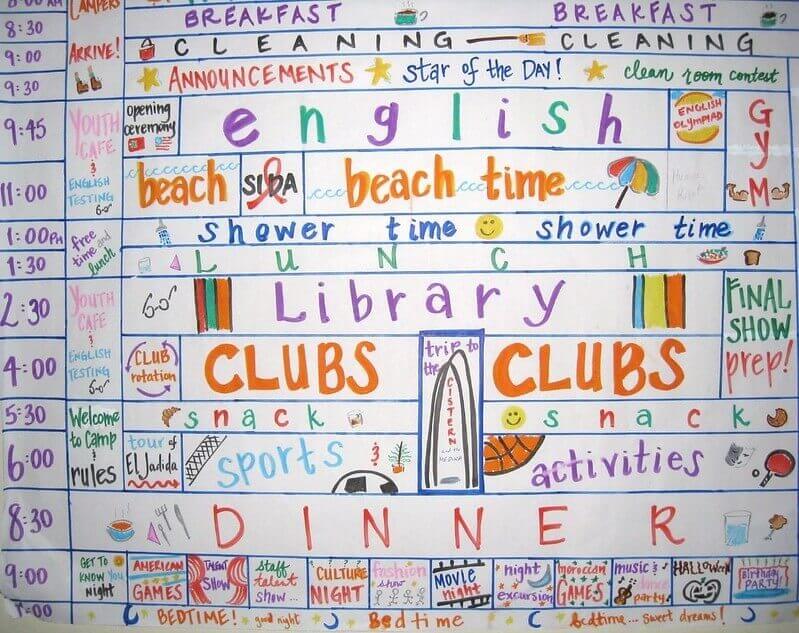 8:00 AM
CAMPERS
BREAKFAST
BREAKFAST
8:30
ARRIVE!
CLEANING
CLEANING
9:00
9:30
ANNOUNCEMENTS
STAR OF the DAY!
clean room contest
9:45
YOUTH
CAFE
&
ENGLISH
TESTING
opening
ceremony
english
ENGLISH
OLYMPIAD
GYM
11:00
beach
SIDA
beach time
1:00PM
free
time and
lunch
shower time
shower time
1:30
LUNCH
2:30
YOUTH
CAFE
&
ENGLISH
TESTING
Library
FINAL
SHOW
prep!
4:00
CLUB
rotation
CLUBS
trip to
the
CISTERN
CLUBS
5:30
Welcome
to Camp
&
rules
snack
snack
6:00
tour of
El Jadida
sports
&
activities
8:30
DINNER
9:00
GET TO
KNOW You
night
AMERICAN
GAMES
TALENT
SHOW
staff
talent
show...
CULTURE
NIGHT
fashion
show
MOVIE
night
night
excursion
moroccan
GAMES
music &
dance
party
HALLOWEEN
Birthday
PARTY
BEDTIME!
good night
Bedtime
Bedtime... sweet dreams!